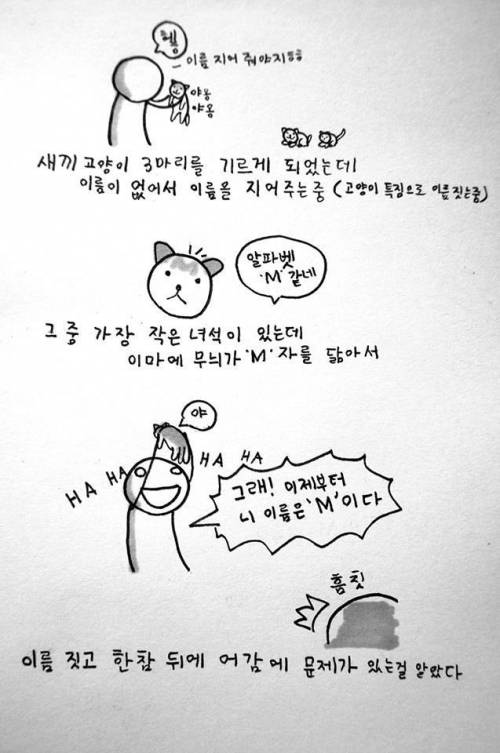 헹
이름 지어 줘야지 등등
야옹
야옹
새끼 고양이 3마리를 기르게 되었는데
이름이 없어서 이름을 지어주는중 (고양이 특징으로 이름짓는중)
알파벳
'M' 같네
그 중 가장 작은 녀석이 있는데
이마에 무늬가 'M' 자를 닮아서
야
HA HA HA HA
그래! 이제부터
니 이름은 'M' 이다
흠칫
이름 짓고 한참 뒤에 어감에 문제가 있는걸 알았다